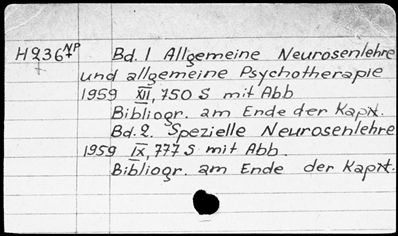 H236 NP Bd. 1 Allgemeine Neurosenlehre
und allgemeine Psychotherapie
1959 XII, 750 S mit Abb
Bibliogr. am Ende der Kapit.
Bd. 2. Spezielle Neurosenlehre
1959 IX, 777 S mit Abb.
Bibliogr. am Ende der Kapit.